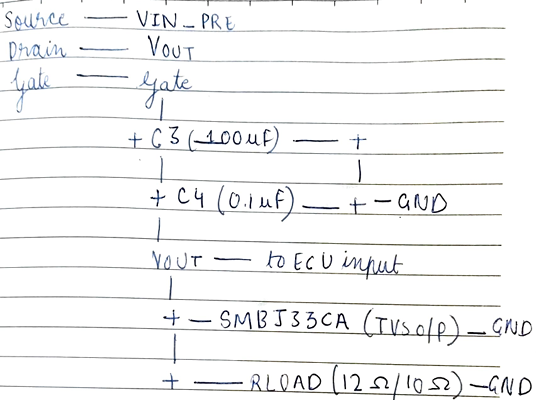 Source — VIN_PRE
Drain — VOUT
Gate — Gate
+ C3 (100uF) — +
+ C4 (0.1uF) — + — GND
VOUT — to ECU input
+ — SMBJ33CA (TVS o/p) — GND
+ — RLOAD (12Ω/10Ω) — GND